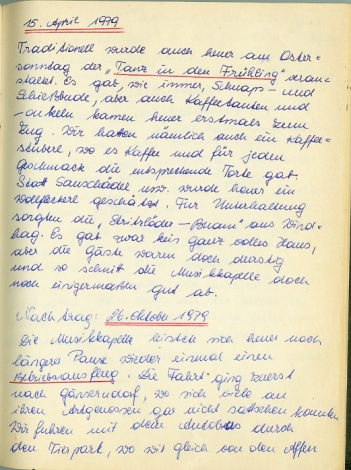 15. April 1979
Traditionell wurde auch heuer am Oster-
sonntag der "Tanz in den Frühling" veran-
staltet. Es gab, wie immer, Schnaps- und
Schießbude, aber auch Kaffeetanten und
-onkeln kamen heuer erstmals zum
Zug. Wir hatten nämlich auch ein Kaffee-
stüberl, wo es Kaffee und für jeden
Geschmack die entsprechende Torte gab.
Statt Sauschädel usw. wurde heuer ein
geschätzt. Für Unterhaltung
sorgten die "-Buam" aus
Es gab zwar kein ganz volles Haus,
aber die Gäste waren doch durstig
und so schnitt die Musikkapelle doch
noch einigermaßen gut ab.
Nachtrag: 26. Oktober 1979
Die Musikkapelle leistete sich heuer nach
längerer Pause wieder einmal einen
Betriebsausflug. Die Fahrt ging zuerst
nach Gänserndorf, wo sich viele an
ihren Artgenossen gar nicht sattsehen konnten.
Wir fuhren mit dem Autobus durch
den Tierpark, wo wir gleich von den Affen